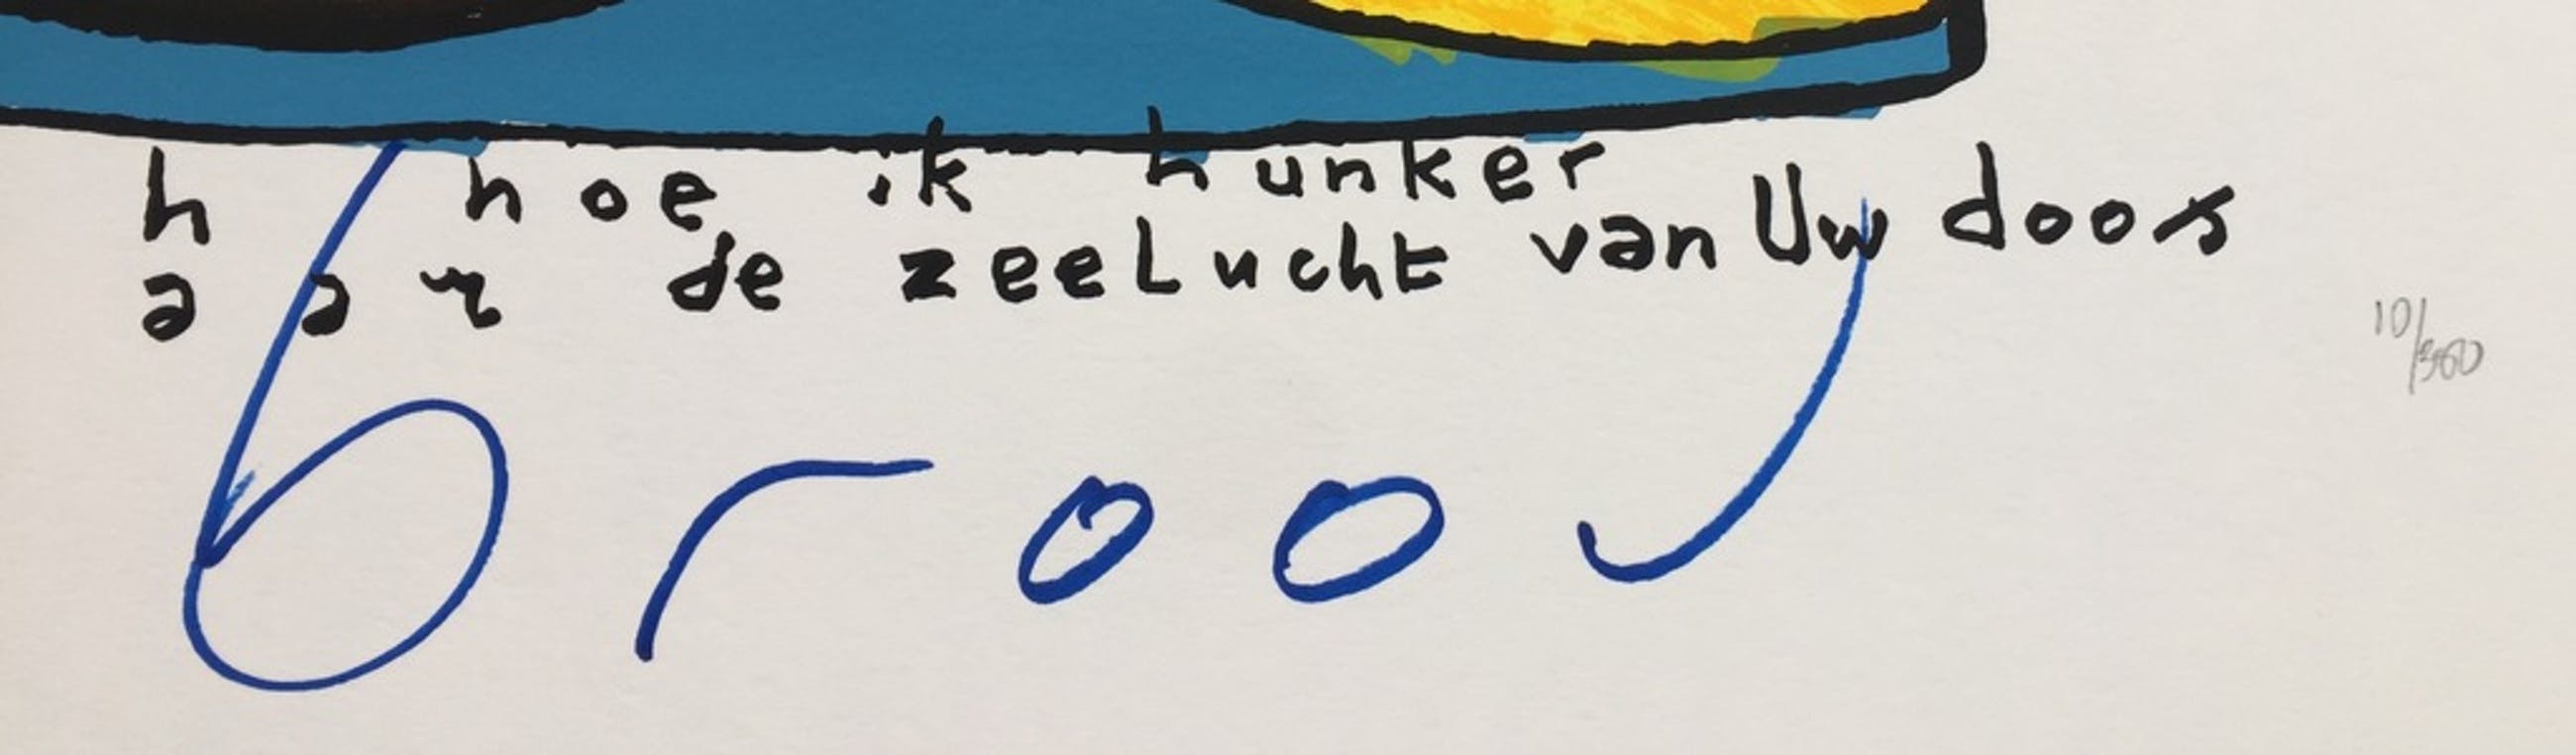 h hoe ik hunker
aar de zeelucht van Uw doos
brood
10/300